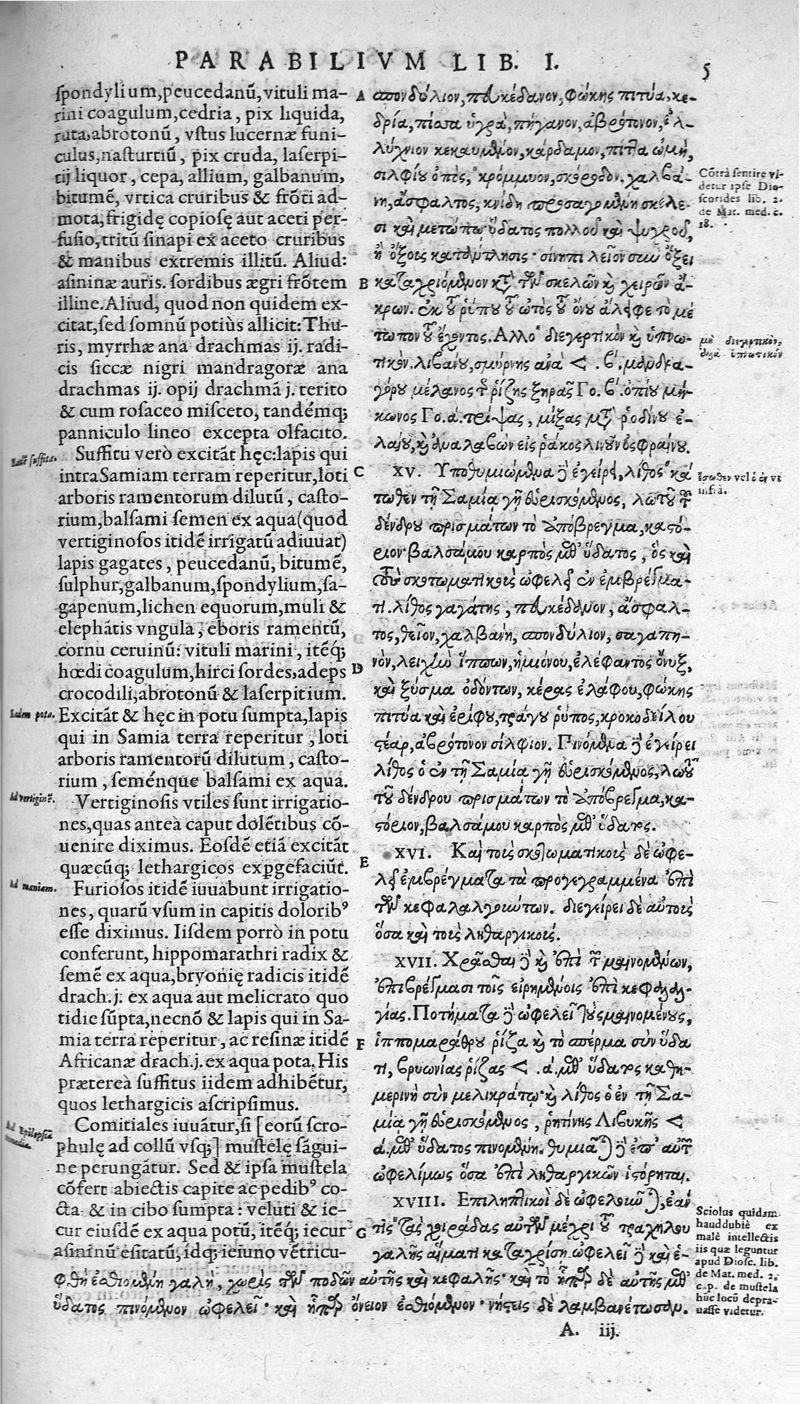 PARABILIVM LIB. I.
5
spondylium, peucedanū, vituli ma-
rini coagulum, cedria, pix liquida,
ruta, abrotonū, vstus lucernæ funi-
culus, nasturtiū, pix cruda, laserpi-
tij liquor, cepa, allium, galbanum,
bitumē, vrtica cruribus & frōti ad-
mota, frigidę copiosę aut aceti per-
fusio, tritū sinapi ex aceto cruribus
& manibus extremis illitū. Aliud:
asininæ auris. sordibus ægri frōtem
illine. Aliud, quod non quidem ex-
citat, sed somnū potiùs allicit: Thu-
ris, myrrhæ ana drachmas ij. radi-
cis siccæ nigri mandragoræ ana
drachmas ij. opij drachmā j. terito
& cum rosaceo misceto, tandémq;
panniculo lineo excepta olfacito.
Suffitu verò excitāt hęc: lapis qui
intra Samiam terram reperitur, loti
arboris ramentorum dilutū, casto-
rium, balsami semen ex aqua (quod
vertiginosos itidē irrigatū adiuuat)
lapis gagates, peucedanū, bitumē,
sulphur, galbanum, spondylium, sa-
gapenum, lichen equorum, muli &
elephātis vngula, eboris ramentū,
cornu ceruinū: vituli marini, itēq;
hœdi coagulum, hirci sordes, adeps
crocodili, abrotonū & laserpitium.
Excitāt & hęc in potu sumpta, lapis
qui in Samia terra reperitur, loti
arboris ramentorū dilutum, casto-
rium, seménque balsami ex aqua.
Vertiginosis vtiles sunt irrigatio-
nes, quas anteà caput dolētibus cō-
uenire diximus. Eosdē etiā excitāt
quæcūq; lethargicos expgefaciūt.
Furiosos itidē iuuabunt irrigatio-
nes, quarū vsum in capitis doloribꝰ
esse diximus. Iisdem porrò in potu
conferunt, hippomarathri radix &
semē ex aqua, bryonię radicis itidē
drach. j. ex aqua aut melicrato quo
tidie sūpta, necnō & lapis qui in Sa-
mia terra reperitur, ac resinæ itidē
Africanæ drach. j. ex aqua pota. His
præterea suffitus iidem adhibētur,
quos lethargicis ascripsimus.
Comitiales iuuātur, si [eorū scro-
phulę ad collū vsq;] mustelę sāgui-
ne perungātur. Sed & ipsa mustela
cōfert abiectis capite ac pedibꝰ co-
cta & in cibo sumpta: veluti & ie-
cur eiusdē ex aqua potū, itēq; iecur
asininū esitatū, idq; ieiuno vētricu-
Eadē suffita.
Eadem pota.
Ad vertiginē.
Ad maniam.
A
B
C
D
E
F
G
σπονδύλιον, πευκέδανον, φώκης πιτύα, κε-
δρία, πίσσα ὑγρὰ, πήγανον, ἀβρότονον, ἐλ-
λύχνιον κεκαυμένον, κάρδαμον, πίττα ὠμὴ,
σιλφίου ὀπὸς, κρόμμυον, σκόροδον. χαλβά-
νη, ἄσφαλτος, κνίδη προσαγομένη σκέλε-
σι καὶ μετώπῳ· ὕδατος πολλοῦ καὶ ψυχροῦ,
ἢ ὄξοις κατάντλησις· σίνηπι λεῖον σὺν ὄξει
καταχριόμενον κατὰ τῶν σκελῶν καὶ χειρῶν ἄ-
κρων. ἐκ τοῦ ῥύπου τοῦ ὠτὸς τοῦ ὄνου ἄλειφε τὸ μέ
τωπον τοῦ ἔχοντος. Ἄλλο διεγερτικὸν καὶ ὑπνω-
τικόν. λιβάνου, σμύρνης ἀνὰ < . β. μανδρα-
γόρου μέλανος τῆς ῥίζης ξηρᾶς Γο. β. ὀπίου μή-
κωνος Γο. α. τρίψας, μίξας μετὰ ῥοδίνου ἐ-
λαίου, καὶ ἀναλαβὼν εἰς ῥάκος λινοῦν ὀσφραίνου.
XV. Ὑποθυμιώμενα δὲ ἐγείρει, λίθος κα
τωθεν τῇ Σαμίᾳ γῇ εὑρισκόμενος, λωτοῦ τοῦ
δένδρου πρισμάτων τὸ ἀπόβρεγμα, καστό-
ριον· βαλσάμου καρπὸς μεθ' ὕδατος, ὃς καὶ
τοὺς σκοτωματικοὺς ὠφελεῖ ἐν ἐμβρέγμα-
τι. λίθος γαγάτης, πευκέδανον, ἄσφαλ-
τος, θεῖον, χαλβάνη, σπονδύλιον, σαγαπη-
νὸν, λειχὴν ἵππων, ἡμιόνου, ἐλέφαντος ὄνυξ,
καὶ ξύσμα ὀδόντων, κέρας ἐλάφου, φώκης
πιτύα καὶ ἐρίφου, τράγου ῥύπος, κροκοδείλου
στέαρ, ἀβρότονον σίλφιον. Πινόμενα δὲ ἐγείρει
λίθος ὁ ἐν τῇ Σαμίᾳ γῇ εὑρισκόμενος, λωτοῦ
τοῦ δένδρου πρισμάτων τὸ ἀπόβρεγμα, κα-
στόριον, βαλσάμου καρπὸς μεθ' ὕδατος.
XVI. Καὶ τοῖς σκοτωματικοῖς δὲ ὠφε-
λεῖ ἐμβρέγματα τὰ προγεγραμμένα ἐπὶ
τῶν κεφαλαλγιώντων. διεγείρει δὲ αὐτοὺς
ὅσα καὶ τοῖς ληθαργικοῖς.
XVII. Χρῆσθαι δὲ καὶ ἐπὶ τῶν μαινομένων,
ἐπιβρέγμασι τοῖς εἰρημένοις ἐπὶ κεφαλαλ-
γίας. Ποτήματα δὲ ὠφελεῖ τοὺς μαινομένους,
ἱππομαράθρου ῥίζα καὶ τὸ σπέρμα σὺν ὕδα
τι, βρυωνίας ῥίζας < . α. μεθ' ὕδατος καθη-
μερινὴ σὺν μελικράτῳ· καὶ λίθος ὁ ἐν τῇ Σα-
μίᾳ γῇ εὑρισκόμενος, ῥητίνης Λιβυκῆς <
α. μεθ' ὕδατος πινομένη. θυμιᾶται δὲ ἐπ' αὐτῶν
ὠφελίμως ὅσα ἐπὶ ληθαργικῶν ἱστόρηται.
XVIII. Επιληπτικοὶ δὲ ὠφελοῦνται, ἐὰν
τις τὰς χοιράδας αὐτῶν μέχρι τοῦ τραχήλου
γαλῆς αἵματι καταχρίσῃ. ὠφελεῖ δὲ καὶ ἑ-
φθὴ ἐσθιομένη γαλῆ, χωρὶς τῶν ποδῶν αὐτῆς καὶ κεφαλῆς· καὶ τὸ ἧπαρ δὲ αὐτῆς μεθ'
ὕδατος πινόμενον ὠφελεῖ· καὶ ἧπαρ ὄνειον ἐσθιόμενον· νήστεις δὲ λαμβανέτωσαν.
Cōtrà sentire vi-
detur ipse Dio-
scorides lib. 2.
de Mat. med. c.
18.
μὴ διεγερτικὸν,
ἀλλὰ ὑπνωτικόν
Sciolus quidam
hauddubiè ex
malè intellectis
iis quæ leguntur
apud Diosc. lib.
de Mat. med. 2.
c.p. de mustela
hūc locū depra-
uasse videtur.
A. iij.